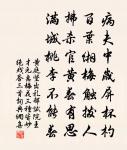 病夫中歲屏杯杓
百葉緗梅觸撥人
拂殺官黃春有思
滿城桃李不能春
黃庭堅出禮部試院王
才元惠梅花三種皆妙
絕戲答三首句典網集